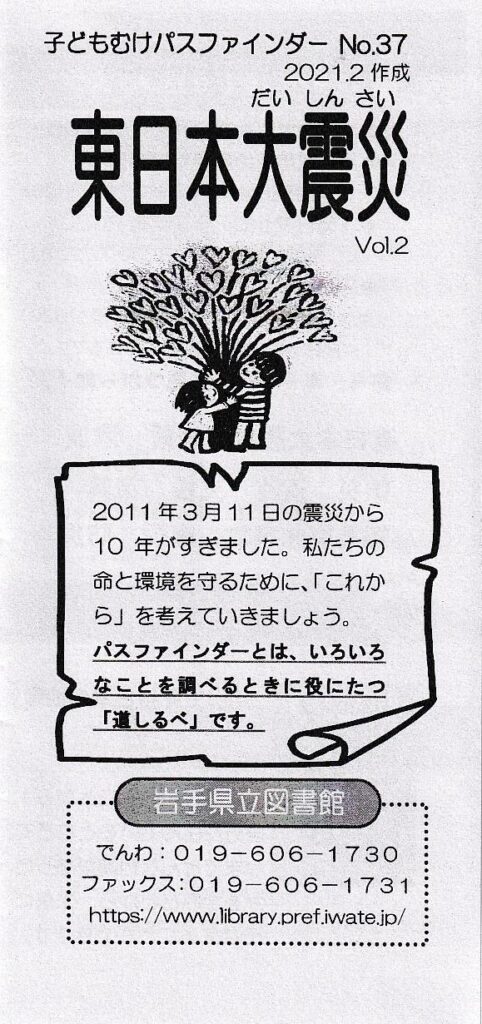 子どもむけパスファインダー No.37
2021.2 作成
だい しん さい
東日本大震災
Vol.2
2011年3月11日の震災から
10 年がすぎました。私たちの
命と環境を守るために、「これか
ら」を考えていきましょう。
パスファインダーとは、いろいろ
なことを調べるときに役にたつ
「道しるべ」です。
岩手県立図書館
でんわ：019－606－1730
ファックス：019－606－1731
https://www.library.pref.iwate.jp/